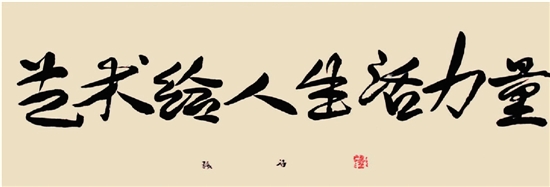 艺术给人生活力量